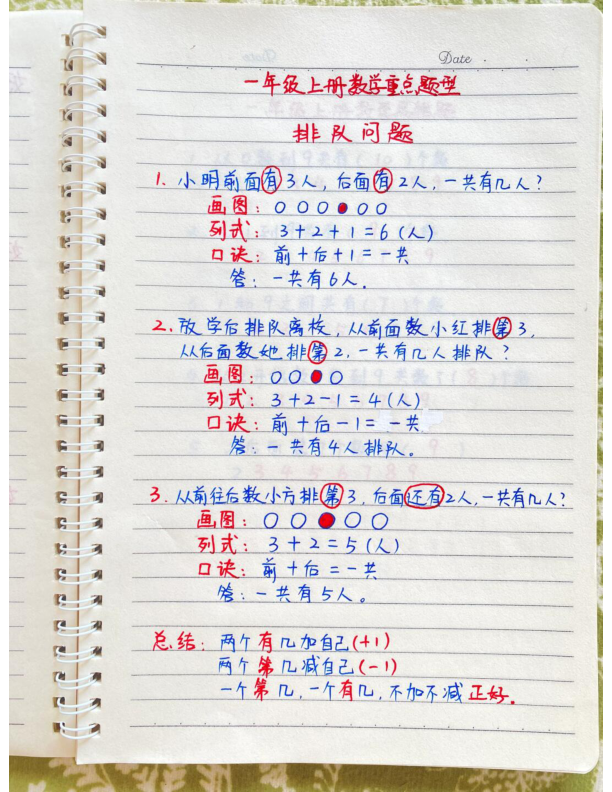 Date
一年级上册数学重点题型
排队问题
1. 小明前面有3人，后面有2人，一共有几人？
画图：○○○●○○
列式：3+2+1=6(人)
口诀：前+后+1=一共
答：一共有6人。
2. 放学后排队离校，从前面数小红排第3，
从后面数她排第2，一共有几人排队？
画图：○○●○
列式：3+2-1=4(人)
口诀：前+后-1=一共
答：一共有4人排队。
3. 从前往后数小方排第3，后面还有2人，一共有几人？
画图：○○●○○
列式：3+2=5(人)
口诀：前+后=一共
答：一共有5人。
总结：两个有几加自己(+1)
两个第几减自己(-1)
一个第几，一个有几，不加不减正好。